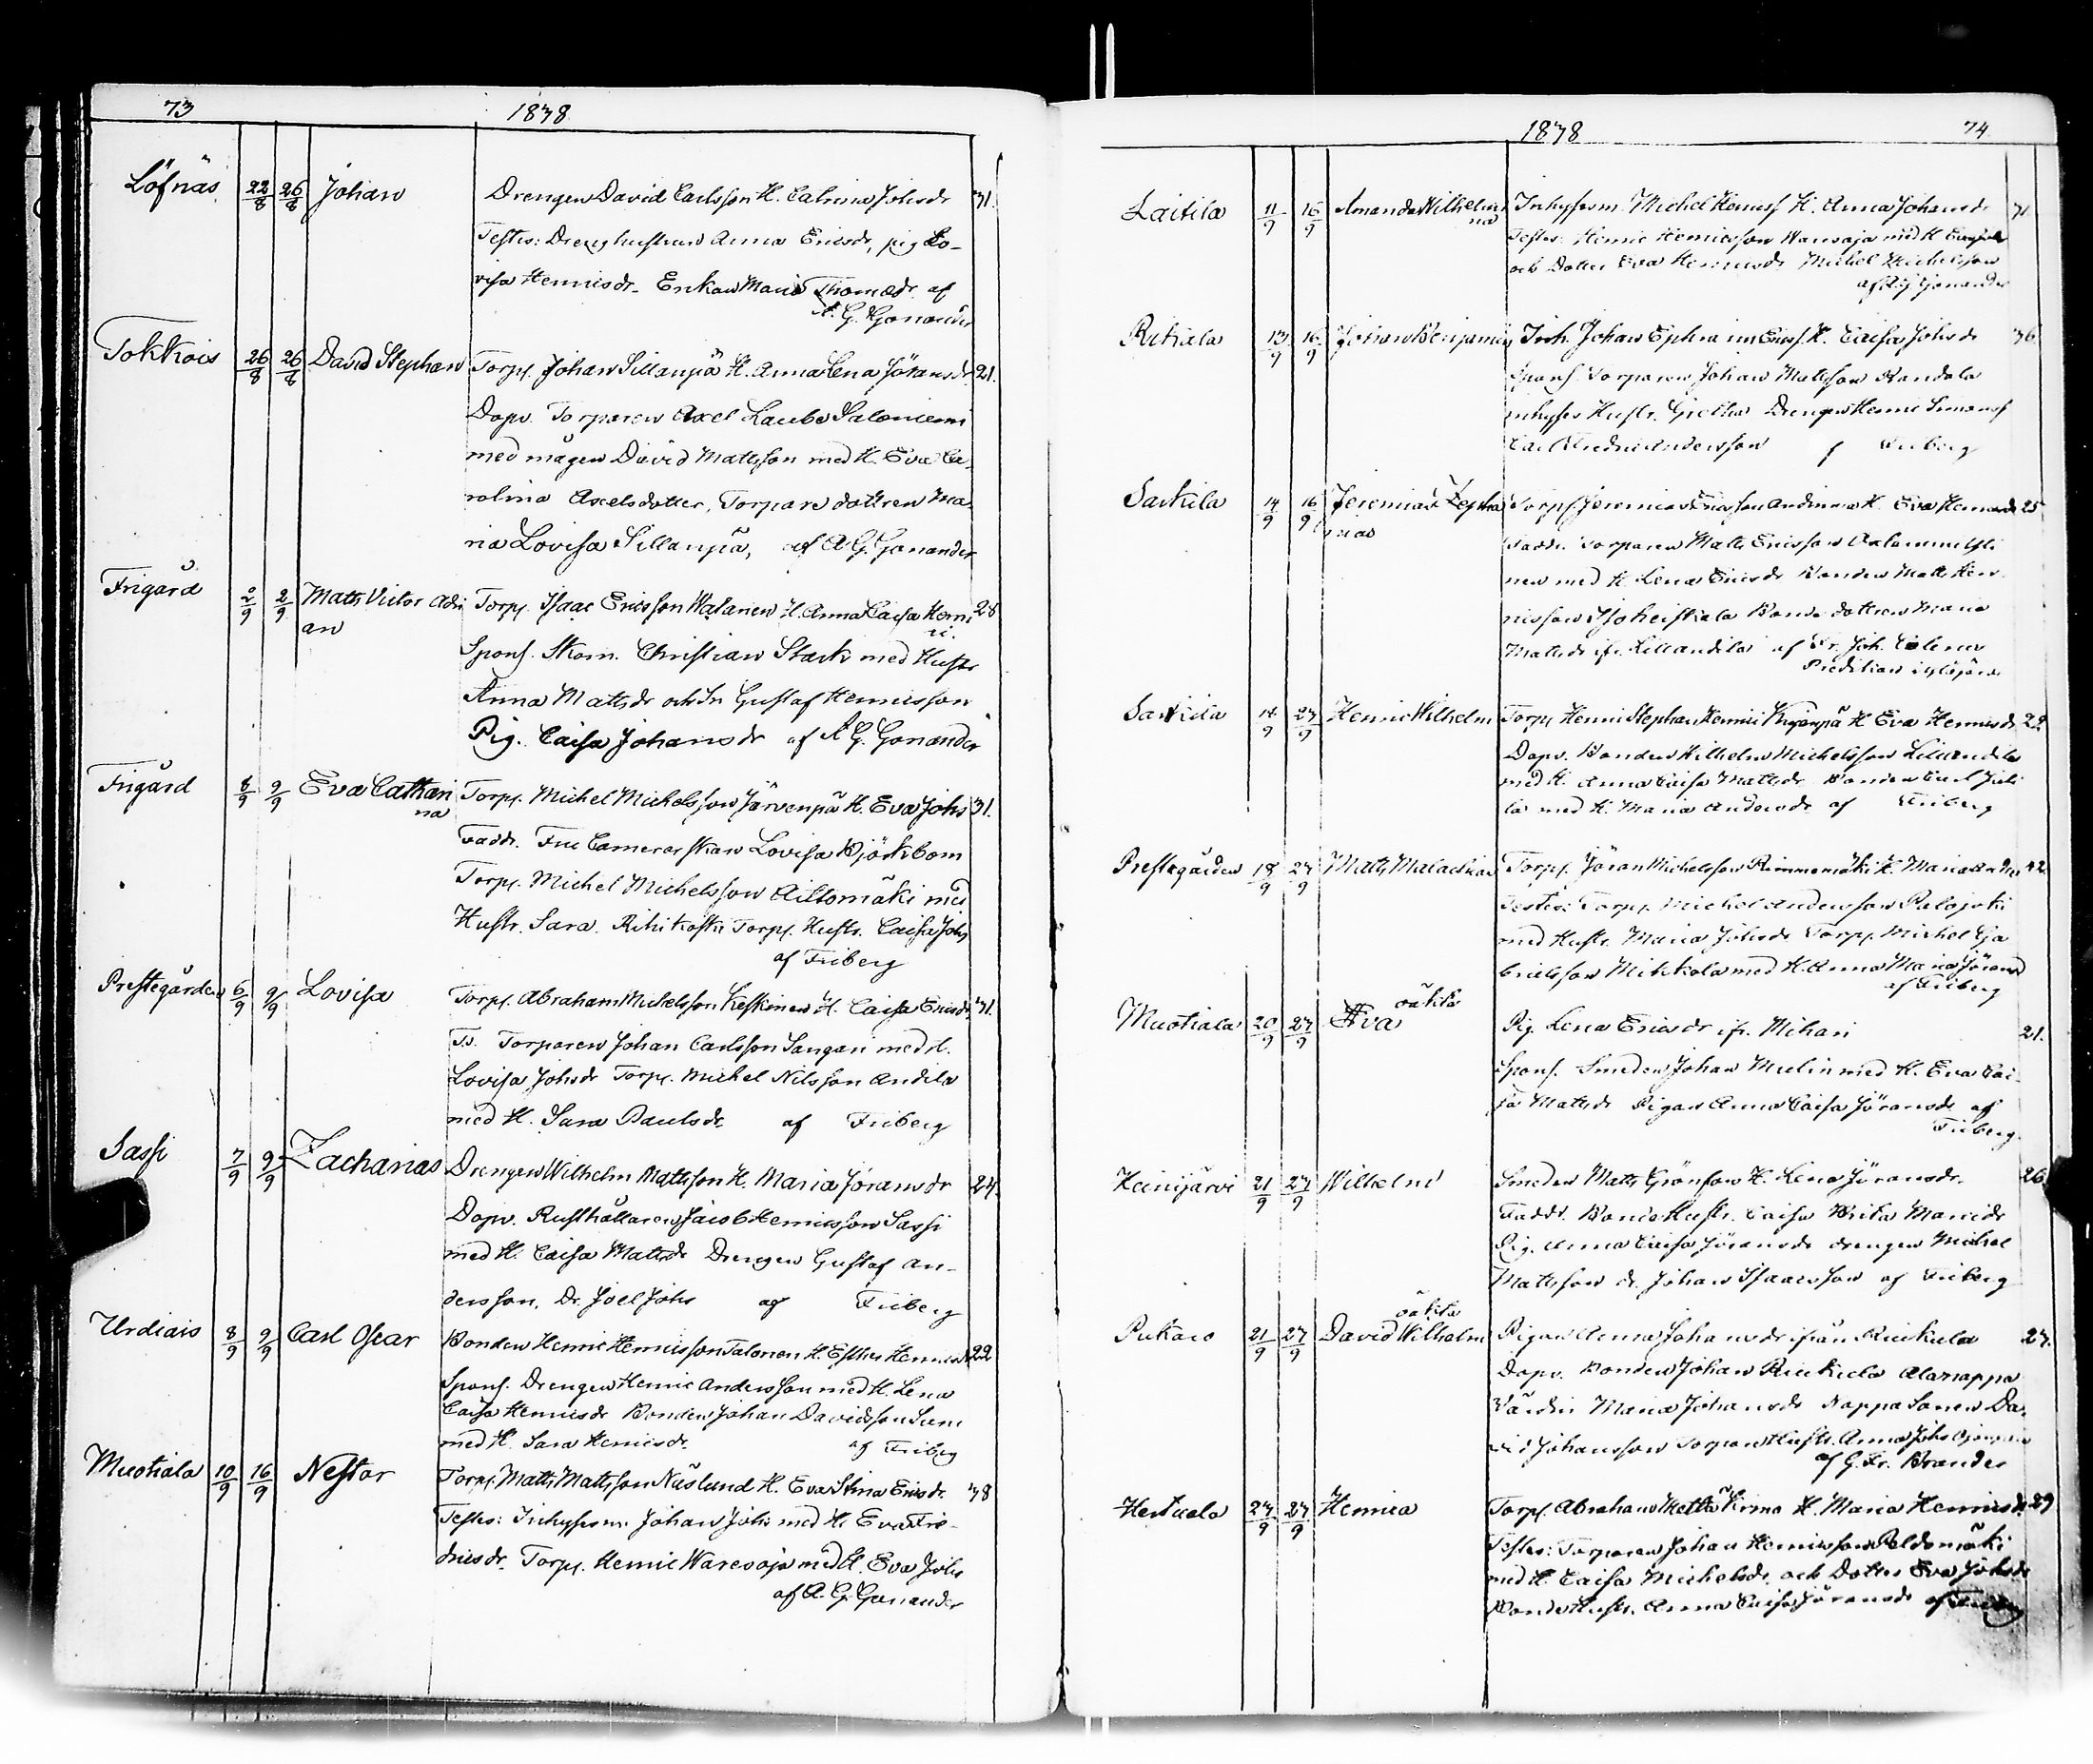 73 1838
Löfnäs 22/8 26/8 Johan Drengen David Carlsson H. Catrina Johsdr 31.
Testes: Dreng hustrun Anna Ericsdr, pig Lo-
visa Henricsdr. Enkan Maria Thomædr. af
A. G. Gonander
Tokkois 26/8 26/8 David Stephan Torp. Johan Sillanpä H. Anna Lena Jöransdr 21.
Dopv. Torparen Axel Laube Saloniemi
med mågen David Mattsson med H. Eva Ca-
rolina Axelsdotter, Torpare dottren Ma-
ria Lovisa Sillanpä, af A G. Gonander
Frigård 2/9 2/9 Matts Victor Adri Torp. Isaac Ericsson Watanen H. Anna Caisa Henri 28
an
Spons. Skom. Christian Stark med Hustr
Anna Mattsdr och Gustaf Henricsson
Pig. Caisa Johansdr af A G. Gonander
Frigård 8/9 9/9 Eva Cathari Torp. Michel Michelsson Järvenpä H. Eva Johs 31.
na
Faddr. Fru Camererskan Lovisa Björkbom
Torp. Michel Michelsson Ailtomäki med
Hustr. Sara Rihikoski Torp. Hustr. Caisa Johs
af Friberg
Prestegården 6/9 9/9 Lovisa Torp. Abraham Michelsson Keskinen H. Caisa Ericsdr. 31.
T. Torparen Johan Carlsson Sangari med H.
Lovisa Johsdr Torp. Michel Nilsson Andila
med H. Sara Paulsdr. af Friberg
Sassi 7/9 9/9 Zacharias Drengen Wilhelm Mattsson H. Maria Jöransdr 24.
Dopv. Rusthållaren Jacob Henricsson Sassi
med H. Caisa Mattsdr Drengen Gustaf An-
dersson, Dr. Joel Johs af Friberg
Urdiais 8/9 9/9 Carl Oscar Bonden Henric Henricsson Talonen H. Esther Henricsdr 22
Spons. Drengen Henric Andersson med H. Lena
Caisa Henricsdr Bonden Johan Davidsson
med H. Sara Henricsdr. af Friberg
Muotiala 10/9 16/9 Nestor Torp. Matts Mattsson Näslund H. Eva Stina Ericsdr. 38
Testes: Inhyses m. Johan Johs med H. Eva Fre-
dricsdr. Torp. Henric Warevoja med H. Eva Johs
af A. G. Gonander
1838 74
Laitila 11/9 16/9 Amanda Wilhelmi Inhyses m. Michel Henricss H. Anna Johansdr 31
na
Testes: Henric Henricsson Warvoja med H.
och Dotter Eva Henricsdr Michel Michelsson
af A G Gonander
13/9 16/9 Johan Benjamin Inh. Johan Ephraim Ericss. H. Caisa Johsdr 36
Spons. Torparen Johan Mattsson Randala
inhyses Hustr. Gretha Drengen Henric Simonss
Carl Fredric Andersson f Friberg
Sarkila 14/9 16/9 Jeremias Zepha Torp. Jeremias Ericsson Andinen H. Eva Henricsdr 25
nias
Faddr. Torparen Matts Ericsson
nen med H. Lena Ericsdr Bonden Matts Hen-
ricsson Bonde dottren Maria
Mattsdr ifr. Killandila af Joh.
Sarkila 14/9 27/9 Henric Wilhelm Torp. Henric Stephan Henrici H. Eva Henricsdr 22
Dopv. Bonden Wilhelm Michelsson
med H. Anna Caisa Mattsdr Bonden Carl
la med H. Maria Andersdr af Friberg
Prestegården 18/9 27/9 Matts Malachias Torp. Jöran Michelsson Rimmomäki H. Maria Andersdr 42
Testes: Torp. Michel Andersson Palojoki
med Hustr. Maria Johsdr Torp. Michel Ga
brielsson Mikkola med H. Anna Maria Jöransdr
af Friberg
oäkta
Muotiala 20/9 27/9 Eva Pig. Lena Ericsdr ifr. Mihari 21.
Spons. Smeden Johan Mulin med H. Eva Cai-
sa Mattsdr Pigan Anna Caisa Jöransdr af
Friberg.
Heinijärvi 21/9 27/9 Wilhelm Smeden Matts Grönfors H. Lena Jöransdr. 26
Faddr. Bonde Hustr. Caisa Brita
Pig. Anna Caisa Jöransdr drengen Michel
Mattsson dr. Johan Isaacsson af Friberg
oäkta
Pukaro 21/9 27/9 David Wilhelm Pigan Anna Johansdr ifrån Ruikula 27.
Dopv. Bonden Johan Alanappa
Värdin Maria Johansdr Nappa Sonen Da-
vid Johansson Torpare Hustr. Anna Johs
af G. Fr. Brander
27/9 27/9 Henrica Torp. Abraham H. Maria Henricsdr 29
Testes: Torparen Johan Henricsson Peldomäki
med H. Caisa Michelsdr. och Dotter Eva Johsdr
Bonde Hustr. Anna Caisa Jöransdr af Friberg